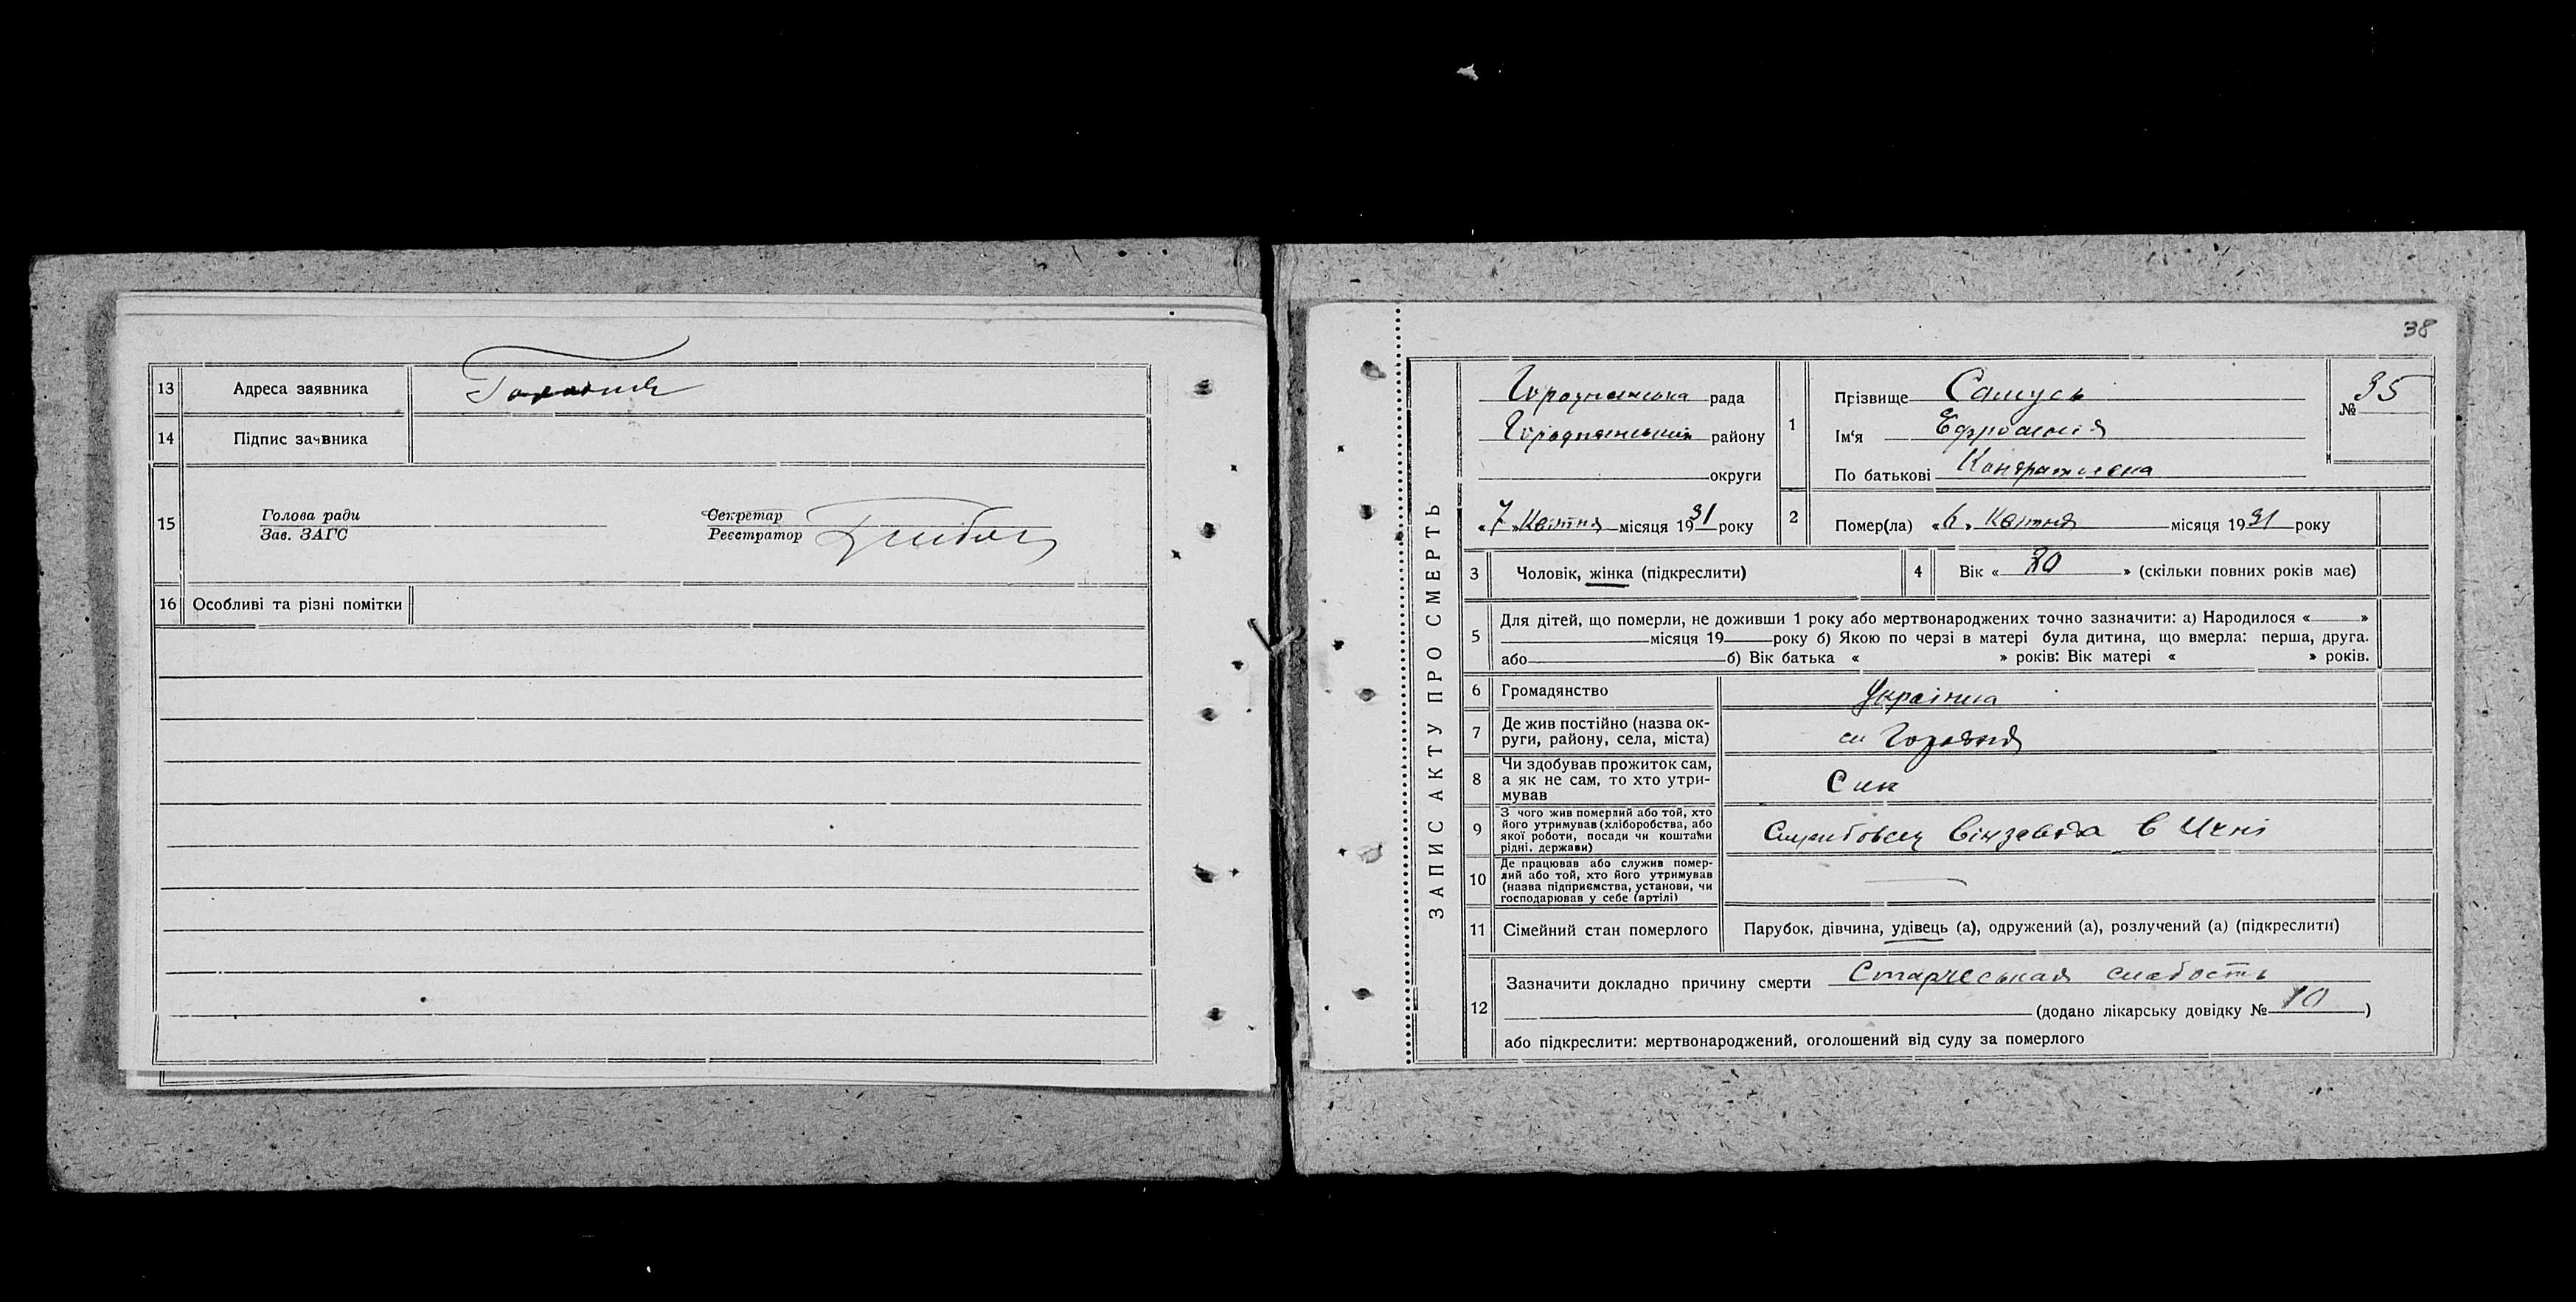 13 Адреса заявника Городня
14 Підпис заявника
15
Голова ради
Зав. ЗАГС
Секретар
Реєстратор
16 Особливі та різні помітки
38
ЗАПИС АКТУ ПРО СМЕРТЬ
Городнянська рада
Городнянський району
округи
«7» Квітня місяця 1931 року
1 Прізвище Самусь
Ім'я Ефросинія
По батькові Кондратиевна
№ 35
2 Помер(ла) «6» Квітня місяця 1931 року
3 Чоловік, жінка (підкреслити)
4 Вік « 80 » (скільки повних років має)
5 Для дітей, що померли, не доживши 1 року або мертвонароджених точно зазначити: а) Народилося « »
місяця 19 року б) Якою по черзі в матері була дитина, що вмерла: перша, друга.
або б) Вік батька « » років: Вік матері « » років.
6 Громадянство Українка
7 Де жив постійно (назва ок-
руги, району, села, міста) Городня
8 Чи здобував прожиток сам,
а як не сам, то хто утри-
мував Син
9 З чого жив померлий або той, хто
його утримував (хліборобства, або
якої роботи, посади чи коштами
рідні, держави) Службовец Вінзавода в Ичні
10 Де працював або служив помер-
лий або той, хто його утримував
(назва підприємства, установи, чи
господарював у себе (артілі)
11 Сімейний стан померлого Парубок, дівчина, удівець (а), одружений (а), розлучений (а) (підкреслити)
12 Зазначити докладно причину смерти Старческая слабость
(додано лікарську довідку № 10 )
або підкреслити: мертвонароджений, оголошений від суду за померлого